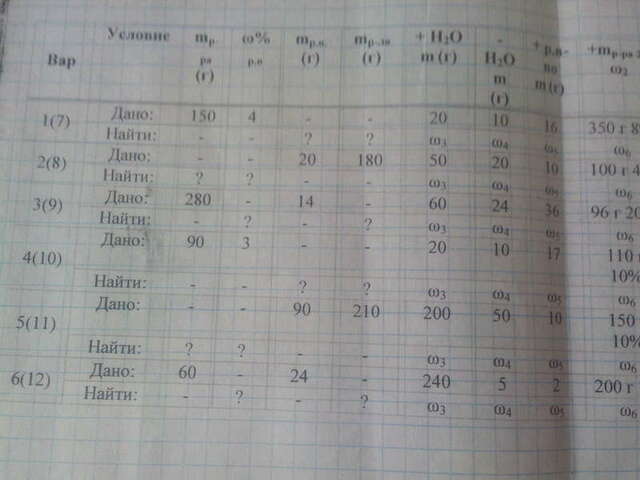 Вар Условие mр-ра (г) ω% р.в mр.в. (г) mр-ля (г) + H2O m (г) - H2O m (г) + р.в-во m (г) +mр-ра 2 ω2
1(7) Дано: 150 4 - - 20 10 16 350 г 8%
Найти: - - ? ? ω3 ω4 ω5 ω6
2(8) Дано: - - 20 180 50 20 10 100 г 4
Найти: ? ? - - ω3 ω4 ω5 ω6
3(9) Дано: 280 - 14 - 60 24 36 96 г 20
Найти: - ? - ? ω3 ω4 ω5 ω6
4(10) Дано: 90 3 - - 20 10 17 110 г 10%
Найти: - - ? ? ω3 ω4 ω5 ω6
5(11) Дано: - - 90 210 200 50 10 150 10%
Найти: ? ? - - ω3 ω4 ω5 ω6
6(12) Дано: 60 - 24 - 240 5 2 200 г
Найти: - ? - ? ω3 ω4 ω5 ω6